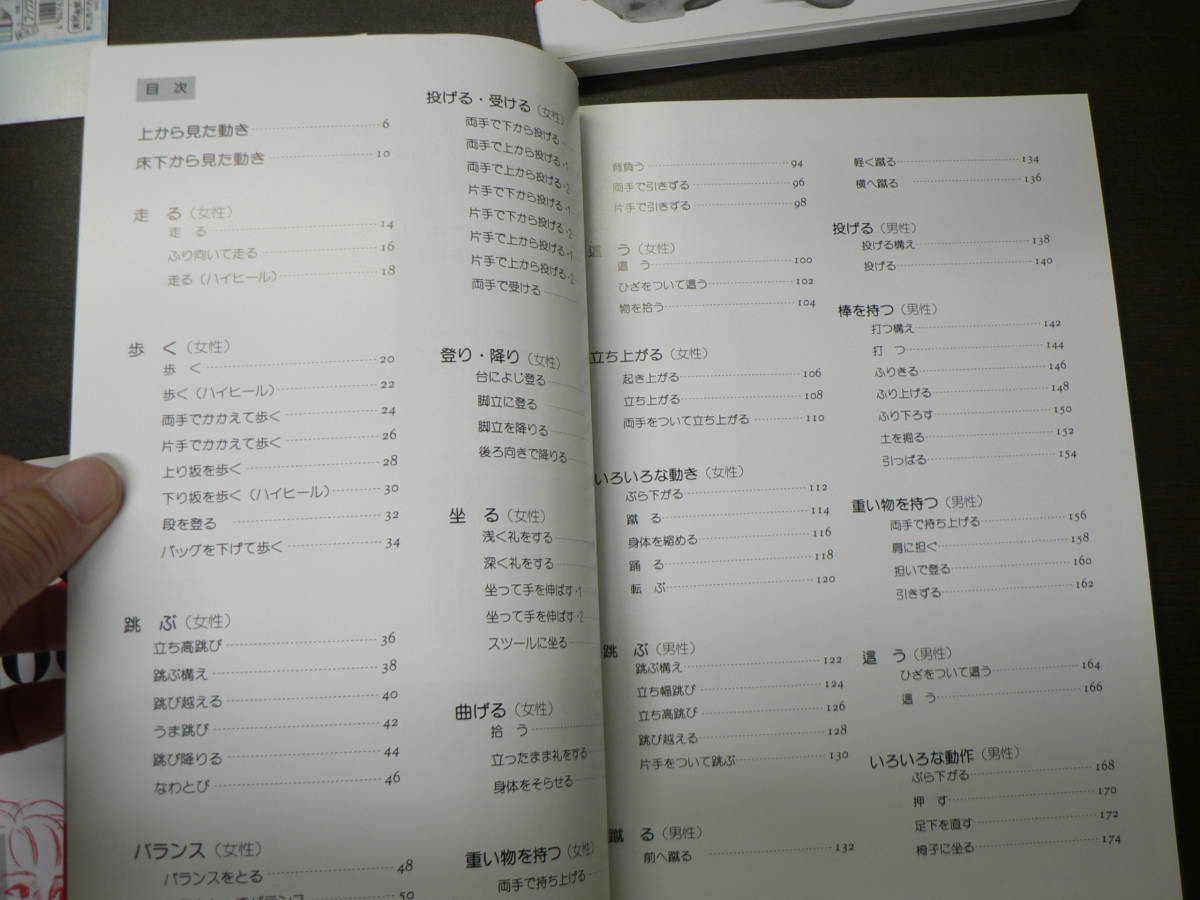 目 次
上から見た動き 6
床下から見た動き 10
走 る（女性）
走 る 14
ふり向いて走る 16
走る（ハイヒール） 18
歩 く（女性）
歩 く 20
歩く（ハイヒール） 22
両手でかかえて歩く 24
片手でかかえて歩く 26
上り坂を歩く 28
下り坂を歩く（ハイヒール） 30
段を登る 32
バッグを下げて歩く 34
跳 ぶ（女性）
立ち高跳び 36
跳ぶ構え 38
跳び越える 40
うま跳び 42
跳び降りる 44
なわとび 46
バランス（女性）
バランスをとる 48
バランス 50
投げる・受ける（女性）
両手で下から投げる
両手で上から投げる・1
両手で上から投げる・2
片手で下から投げる・1
片手で下から投げる・2
片手で上から投げる・1
片手で上から投げる・2
両手で受ける
登り・降り（女性）
台によじ登る
脚立に登る
脚立を降りる
後ろ向きで降りる
坐 る（女性）
浅く礼をする
深く礼をする
坐って手を伸ばす・1
坐って手を伸ばす・2
スツールに坐る
曲げる（女性）
拾 う
立ったまま礼をする
身体をそらせる
重い物を持つ（女性）
両手で持ち上げる
背負う 94
両手で引きずる 96
片手で引きずる 98
這 う（女性）
這 う 100
ひざをついて這う 102
物を拾う 104
立ち上がる（女性）
起き上がる 106
立ち上がる 108
両手をついて立ち上がる 110
いろいろな動き（女性）
ぶら下がる 112
蹴 る 114
身体を縮める 116
踊 る 118
転 ぶ 120
跳 ぶ（男性）
跳ぶ構え 122
立ち幅跳び 124
立ち高跳び 126
跳び越える 128
片手をついて跳ぶ 130
蹴 る（男性）
前へ蹴る 132
軽く蹴る 134
横へ蹴る 136
投げる（男性）
投げる構え 138
投げる 140
棒を持つ（男性）
打つ構え 142
打 つ 144
ふりきる 146
ふり上げる 148
ふり下ろす 150
土を掘る 152
引っぱる 154
重い物を持つ（男性）
両手で持ち上げる 156
肩に担ぐ 158
担いで登る 160
引きずる 162
這 う（男性）
ひざをついて這う 164
這 う 166
いろいろな動作（男性）
ぶら下がる 168
押 す 170
足下を直す 172
椅子に坐る 174